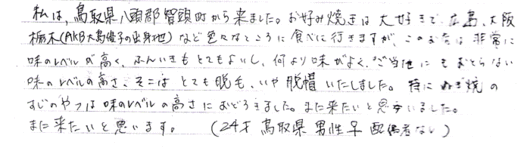 私は、鳥取県八頭郡智頭町から来ました。お好み焼きは大好きで、広島、大阪
栃木(AKB大島優子の出身地)など色々なところに食べに行きますが、このお店は非常に
味のレベルが高く、ふんいきもとてもよいし、何より味がよく、ご当地にもおとらない
味のレベルの高さ、そこはとても脱毛、いや脱帽いたしました。特にねぎ焼の
すじのやつは味のレベルの高さにおどろきました。また来たいと思いました。
また来たいと思います。 (24才 鳥取県 男性 配偶者なし)